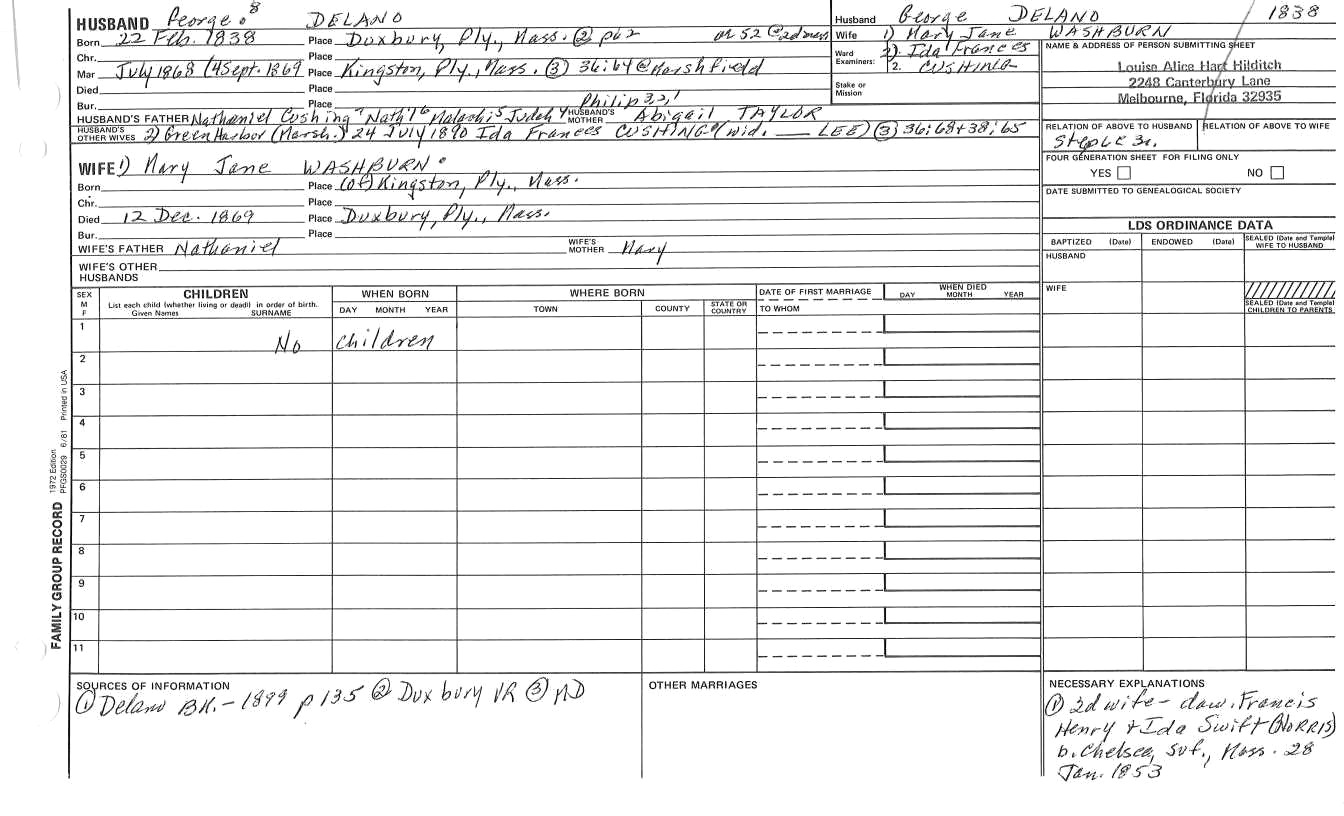 HUSBAND George 8 DELANO
Born 22 Feb. 1838 Place Duxbury, Ply., Mass. ② p62 or 52 @ 2d marr
Chr. Place
Mar July 1868 (4 Sept. 1869 Place Kingston, Ply., Mass. ③ 36:64 @ Marshfield
Died Place
Bur. Place Philip 3,2,1
HUSBAND'S FATHER Nathaniel Cushing 7 Nath'l 6 Malachi 5 Judah 4 HUSBAND'S MOTHER Abigail TAYLOR
HUSBAND'S OTHER WIVES 2) Green Harbor (Marsh.) 24 July 1890 Ida Frances CUSHING (wid. ___ LEE) ③ 36:68+38:65
WIFE 1) Mary Jane WASHBURN
Born Place (of) Kingston, Ply., Mass.
Chr. Place
Died 12 Dec. 1869 Place Duxbury, Ply., Mass.
Bur. Place
WIFE'S FATHER Nathaniel WIFE'S MOTHER Mary
WIFE'S OTHER HUSBANDS
Husband George DELANO 1838
Wife 1) Mary Jane WASHBURN
Ward Examiners: 2). Ida Frances
2. CUSHING
Stake or Mission
NAME & ADDRESS OF PERSON SUBMITTING SHEET
Louise Alice Hart Hilditch
2248 Canterbury Lane
Melbourne, Florida 32935
RELATION OF ABOVE TO HUSBAND RELATION OF ABOVE TO WIFE
FOUR GENERATION SHEET FOR FILING ONLY
YES NO
DATE SUBMITTED TO GENEALOGICAL SOCIETY
LDS ORDINANCE DATA
BAPTIZED (Date) ENDOWED (Date) SEALED (Date and Temple) WIFE TO HUSBAND
HUSBAND
WIFE
SEALED (Date and Temple) CHILDREN TO PARENTS
SEX M F
CHILDREN
List each child (whether living or dead) in order of birth.
Given Names SURNAME
WHEN BORN
DAY MONTH YEAR
WHERE BORN
TOWN COUNTY STATE OR COUNTRY
DATE OF FIRST MARRIAGE
TO WHOM
WHEN DIED
DAY MONTH YEAR
1 No children
2
3
4
5
6
7
8
9
10
11
FAMILY GROUP RECORD
1972 Edition
PFGS0029 6/81 Printed in USA
SOURCES OF INFORMATION
① Delano BK. - 1899 p 135 ② Duxbury VR ③ MD
OTHER MARRIAGES
NECESSARY EXPLANATIONS
① 2d wife - daw. Francis
Henry & Ida Swift (NORRIS)
b. Chelsea, Suf., Mass. 28
Jan. 1853